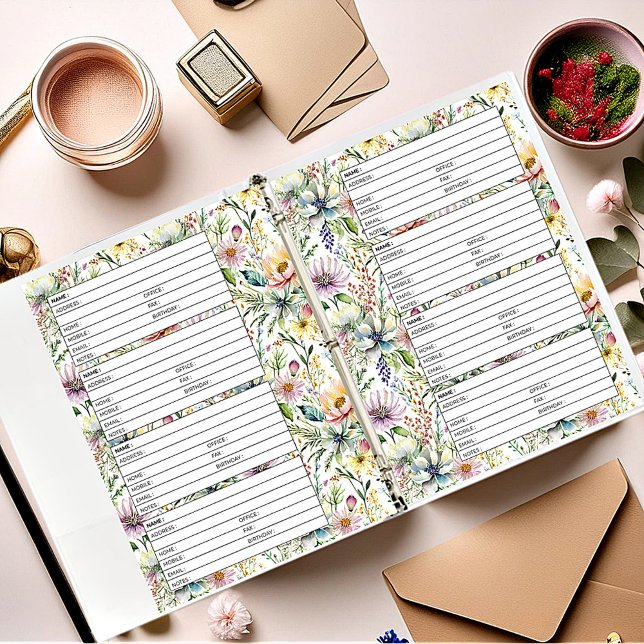 NAME :
ADDRESS :
HOME : OFFICE :
MOBILE : FAX :
EMAIL : BIRTHDAY :
NOTES :
NAME :
ADDRESS :
HOME : OFFICE :
MOBILE : FAX :
EMAIL : BIRTHDAY :
NOTES :
NAME :
ADDRESS :
HOME : OFFICE :
MOBILE : FAX :
EMAIL : BIRTHDAY :
NOTES :
NAME :
ADDRESS :
HOME : OFFICE :
MOBILE : FAX :
EMAIL : BIRTHDAY :
NOTES :
NAME :
ADDRESS :
HOME : OFFICE :
MOBILE : FAX :
EMAIL : BIRTHDAY :
NOTES :
NAME :
ADDRESS :
HOME : OFFICE :
MOBILE : FAX :
EMAIL : BIRTHDAY :
NOTES :
NAME :
ADDRESS :
HOME : OFFICE :
MOBILE : FAX :
EMAIL : BIRTHDAY :
NOTES :
NAME :
ADDRESS :
HOME : OFFICE :
MOBILE : FAX :
EMAIL : BIRTHDAY :
NOTES :